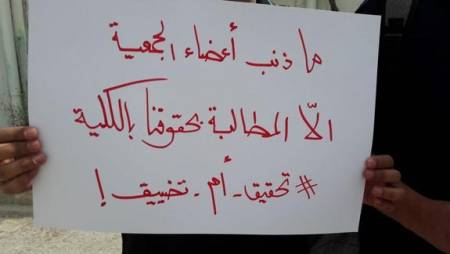 ما ذنب أعضاء الجمعية
الّا المطالبة بحقوقنا بالكلية
#تحقيق_أم_تضييق !